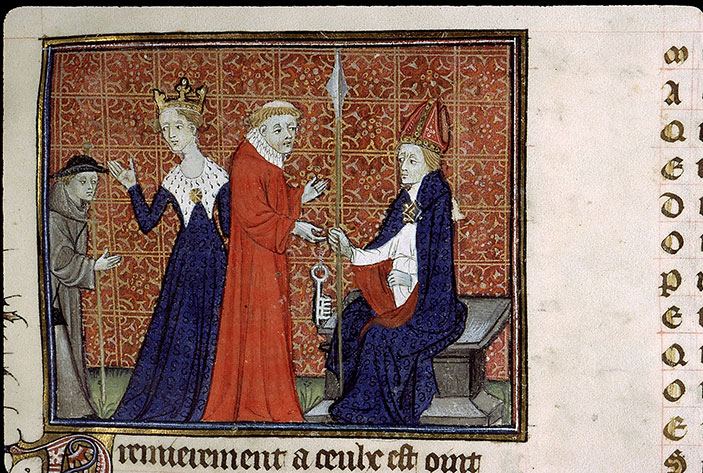 Premierement a ceulx est ouit
m
A
Q
E
D
O
P
E
Q
O
E
S